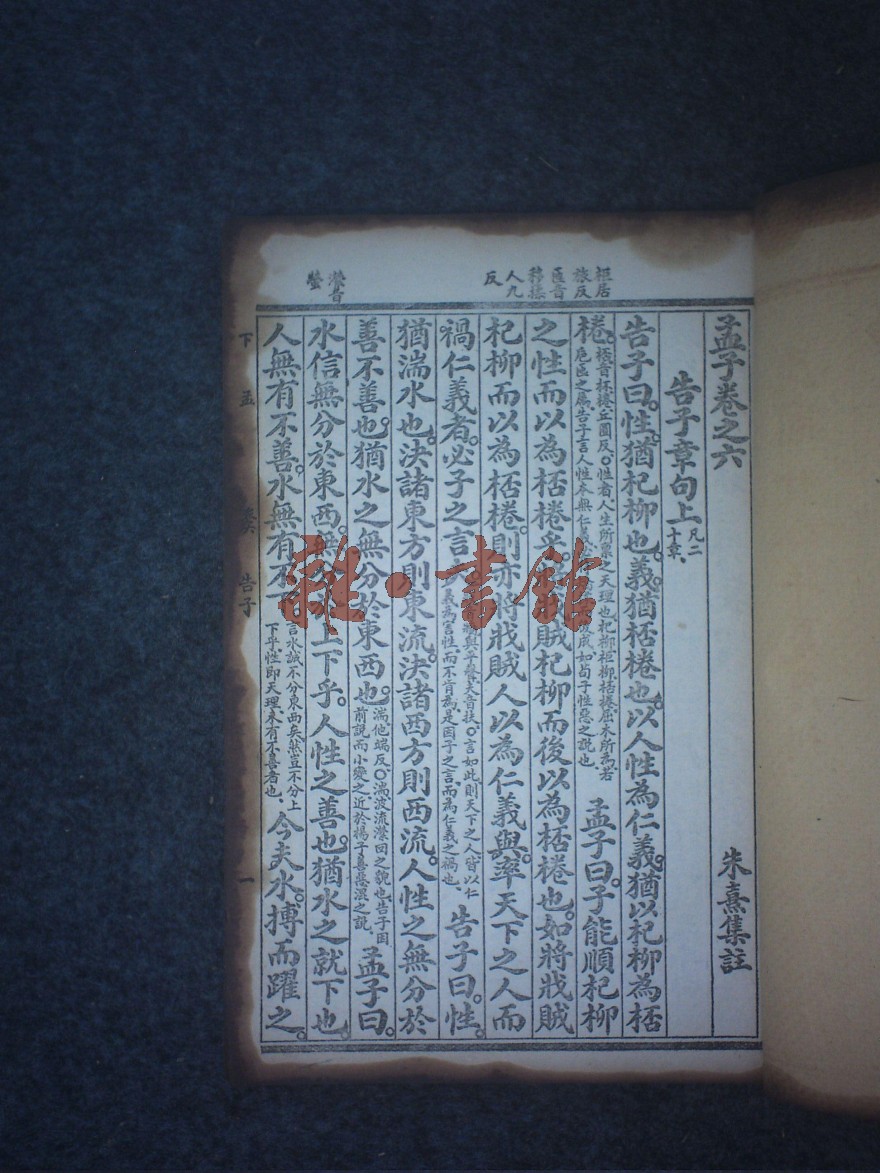 孟子卷之六 朱熹集註
告子章句上 凡二十章、
告子曰。性猶杞柳也。義猶桮棬也。以人性為仁義。猶以杞柳為桮
棬。桮音杯、棬丘圓反。○性者、人生所稟之天理也、杞柳、柜柳、桮棬、屈木所為、若巵匜之屬、告子言人性本無仁義、成、如荀子性惡之說也、 孟子曰。子能順杞柳
之性而以為桮棬乎。賊杞柳而後以為桮棬也。如將戕賊
杞柳而以為桮棬。則亦將戕賊人以為仁義與。率天下之人而
禍仁義者。必子之言夫。與平聲、夫音扶。○言如此、則天下之人、皆以仁義為害性、而不肯為、是因子之言、而為仁義之禍也、 告子曰。性。
猶湍水也。決諸東方則東流。決諸西方則西流。人性之無分於
善不善也。猶水之無分於東西也。湍他端反。○湍、波流瀠回之貌也、告子因前說、而小變之、近於揚子善惡混之說、 孟子曰。
水信無分於東西。無上下乎。人性之善也。猶水之就下也。
人無有不善。水無有不下。言水誠不分東西矣、然豈不分上下乎、性即天理、未有不善者也、 今夫水。搏而躍之。
柜居
旅反
匜音
移搽
人九
反
瀠音
螢
下孟 告子 一
雜·書館